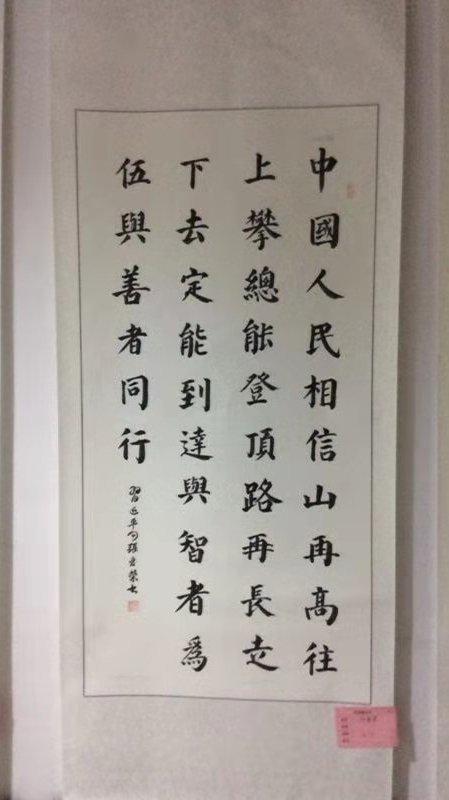 中國人民相信山再高往
上攀總能登頂路再長走
下去定能到達與智者爲
伍與善者同行
習近平句張立榮书